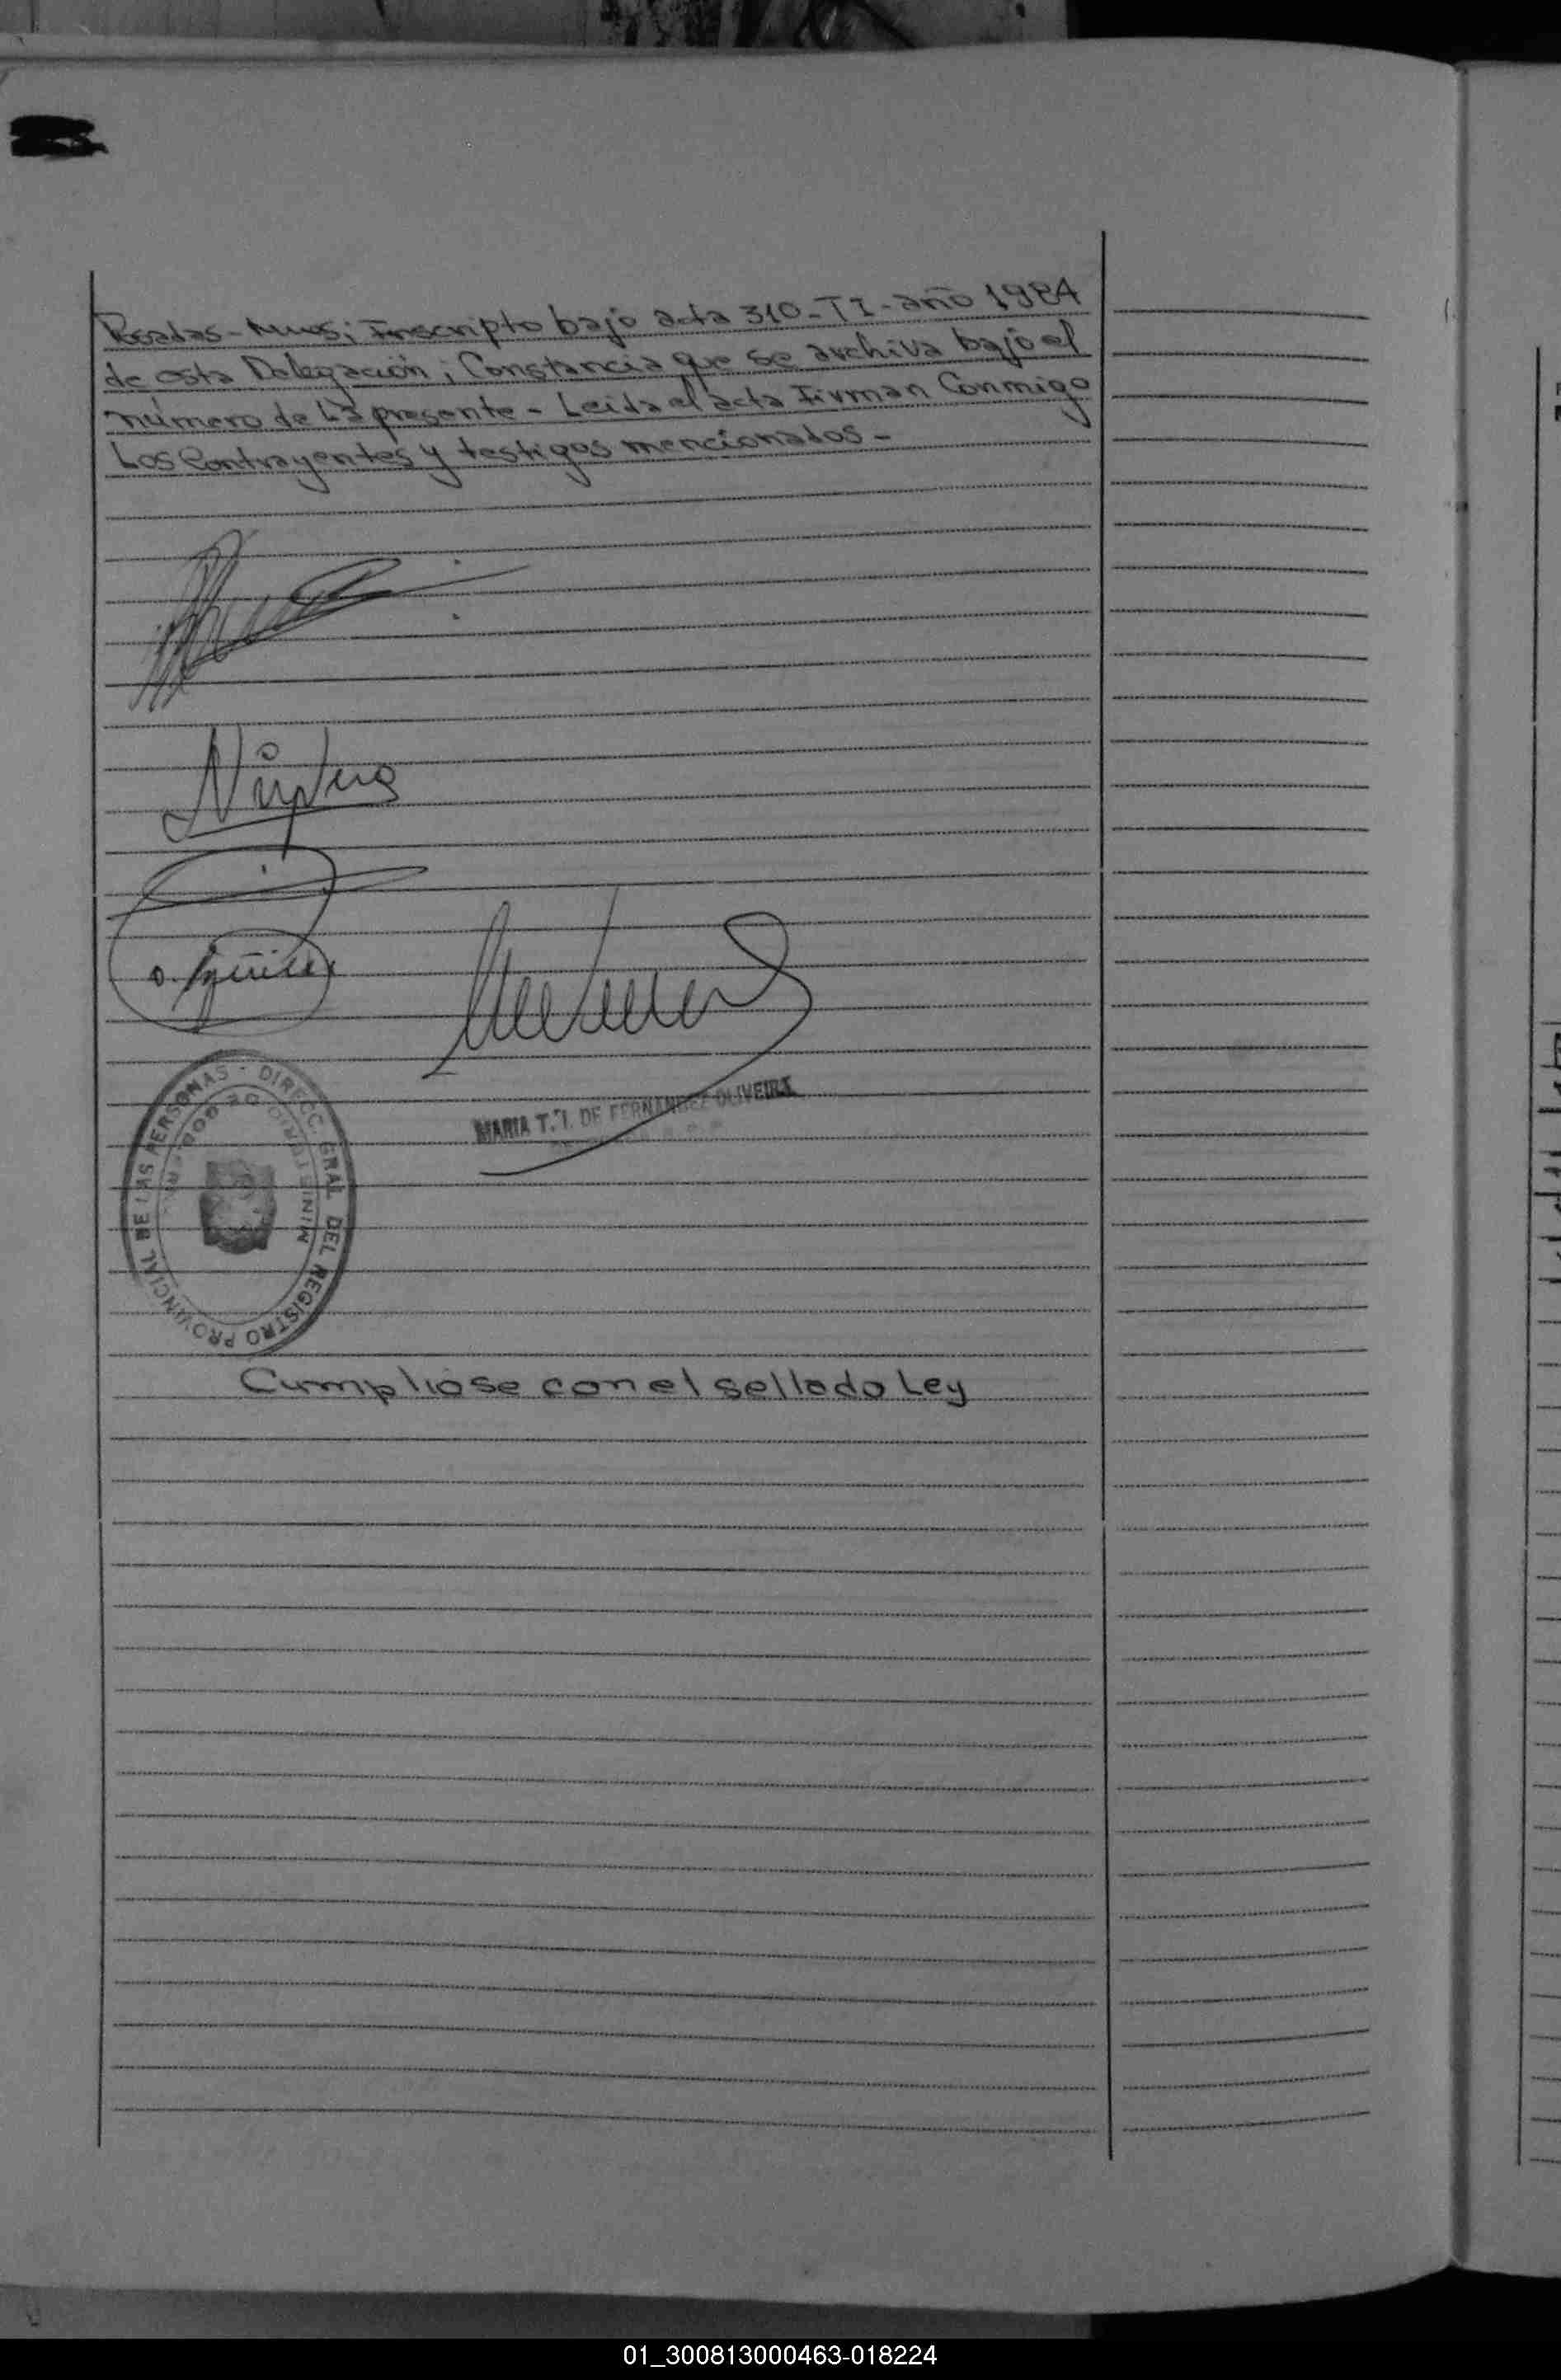 Posadas - Mnes; Inscripto bajo acta 310 - T I - año 1984
de esta Delegación; Constancia que se archiva bajo el
número de la presente - Leida el acta Firman Conmigo
Los Contrayentes y testigos mencionados -
MARIA T. I. DE FERNANDEZ OLIVEIRA
DIRECC. GRAL DEL REGISTRO PROVINCIAL DE LAS PERSONAS
MINISTERIO DE GOB.
Cumpliose con el sellado Ley
01_300813000463-018224